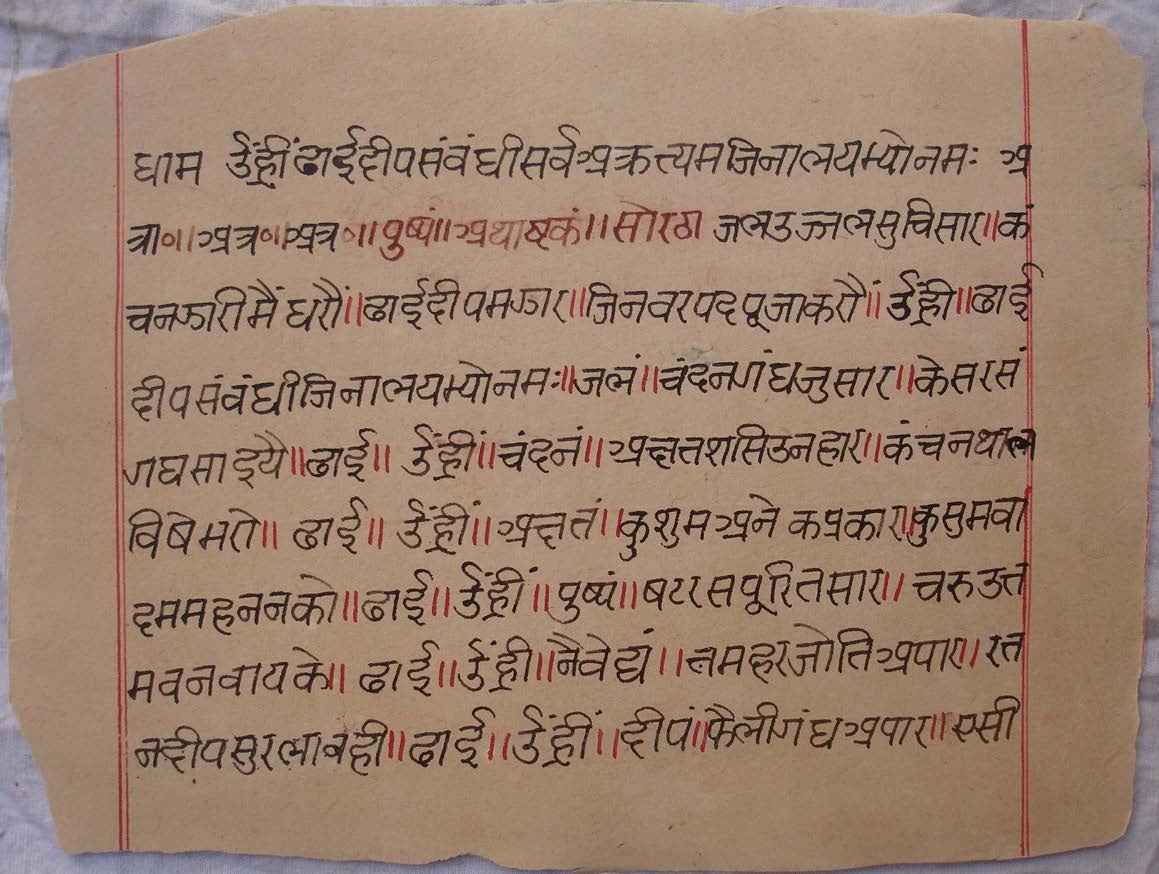 धाम ॐह्रीं ढाईदीपसंवंधीसर्वअक्रत्यमजिनालयभ्योनमः अ
त्रा०॥अत्र०॥अत्र०॥पुष्पं॥अथाष्टकं॥सोरठा जलउज्जलसुचिसार॥कं
चनझारीमैंधरौं॥ढाईदीपमझार॥जिनवरपदपूजाकरौं॥ॐह्रीं॥ढाई
दीपसंवंधीजिनालयभ्योनमः॥जलं॥चंदनगंधजुसार॥केसरसं
गघसाइयै॥ढाई॥ ॐह्रीं॥चंदनं॥अक्षतशसिउनहार॥कंचनथाल
विषेभरो॥ ढाई॥ ॐह्रीं॥अक्षतं॥कुशुमअनेकप्रकार॥कुसुमवा
दममहननको॥ढाई॥ॐह्रीं॥पुष्पं॥षटरसपूरितसार॥चरुउत्त
मवनवायके॥ ढाई॥ॐह्रीं॥नैवेद्यं॥तमहरजोतिअपार॥रत
नदीपसुरलावही॥ढाई॥ॐह्रीं॥दीपं॥फैलीगंधअपार॥एसी